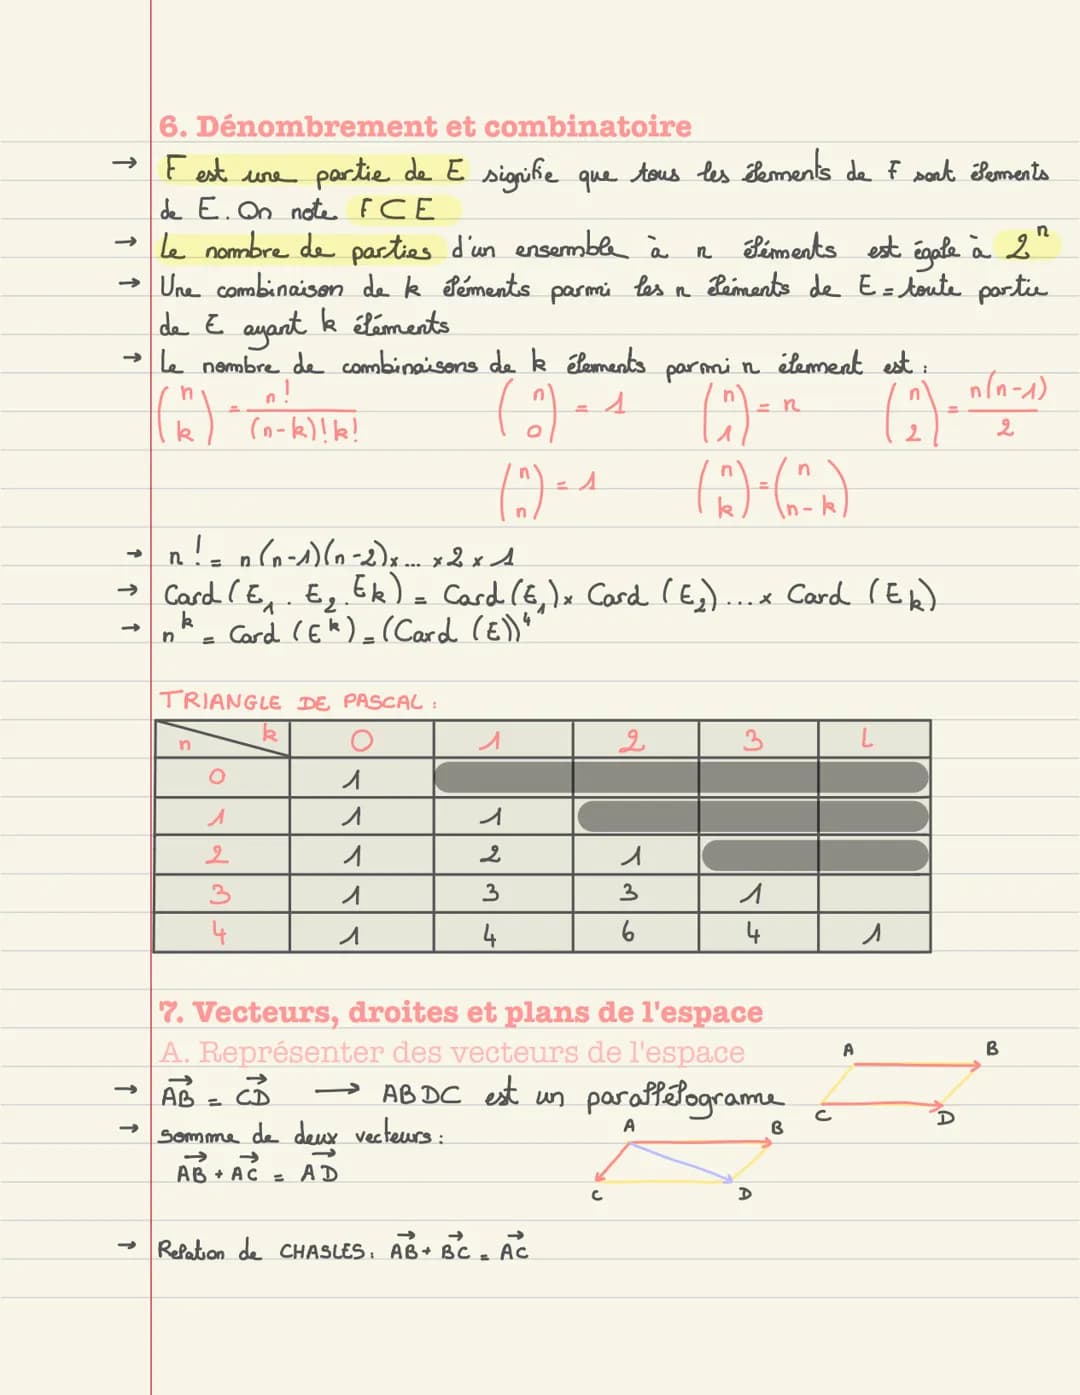 6. Dénombrement et combinatoire
→ F est une partie de E signifie que tous les éléments de F sont éléments
de E. On note F ⊂ E
→ Le nombre de parties d'un ensemble à n éléments est égale à 2^n
→ Une combinaison de k éléments parmi les n éléments de E = toute partie
de E ayant k éléments
→ Le nombre de combinaisons de k éléments parmi n élément est :
(n k) = n! / (n-k)!k! (n 0) = 1 (n 1) = n (n 2) = n(n-1) / 2
(n n) = 1 (n k) = (n n-k)
→ n! = n(n-1)(n-2)x...x2x1
→ Card(E₁. E₂. Ek) = Card(E₁)x Card (E₂)...x Card (Ek)
→ n^k = Card (E^k) = (Card (E))^4
TRIANGLE DE PASCAL :
n k 0 1 2 3 L
0 1
1 1 1
2 1 2 1
3 1 3 3 1
4 1 4 6 4 1
7. Vecteurs, droites et plans de l'espace
A. Représenter des vecteurs de l'espace
A B
→ AB = CD → ABDC est un parallélogramme
C D
→ somme de deux vecteurs :
A B
AB + AC = AD
C D
→ Relation de CHASLES : AB + BC = AC